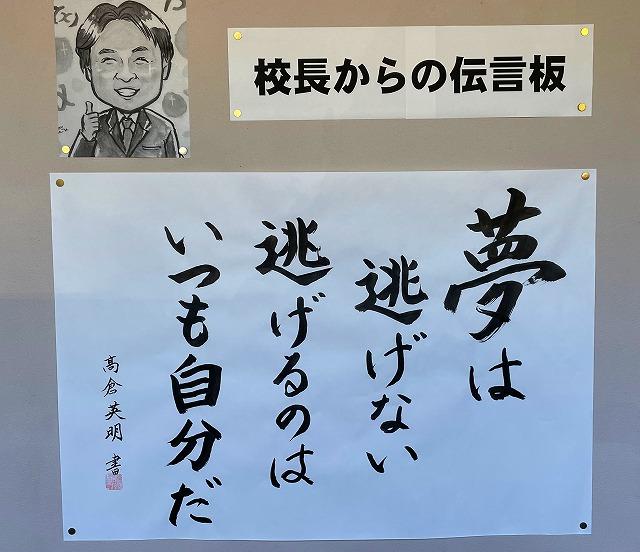 校長からの伝言板
夢は
逃げない
逃げるのは
いつも自分だ
髙倉英明 書